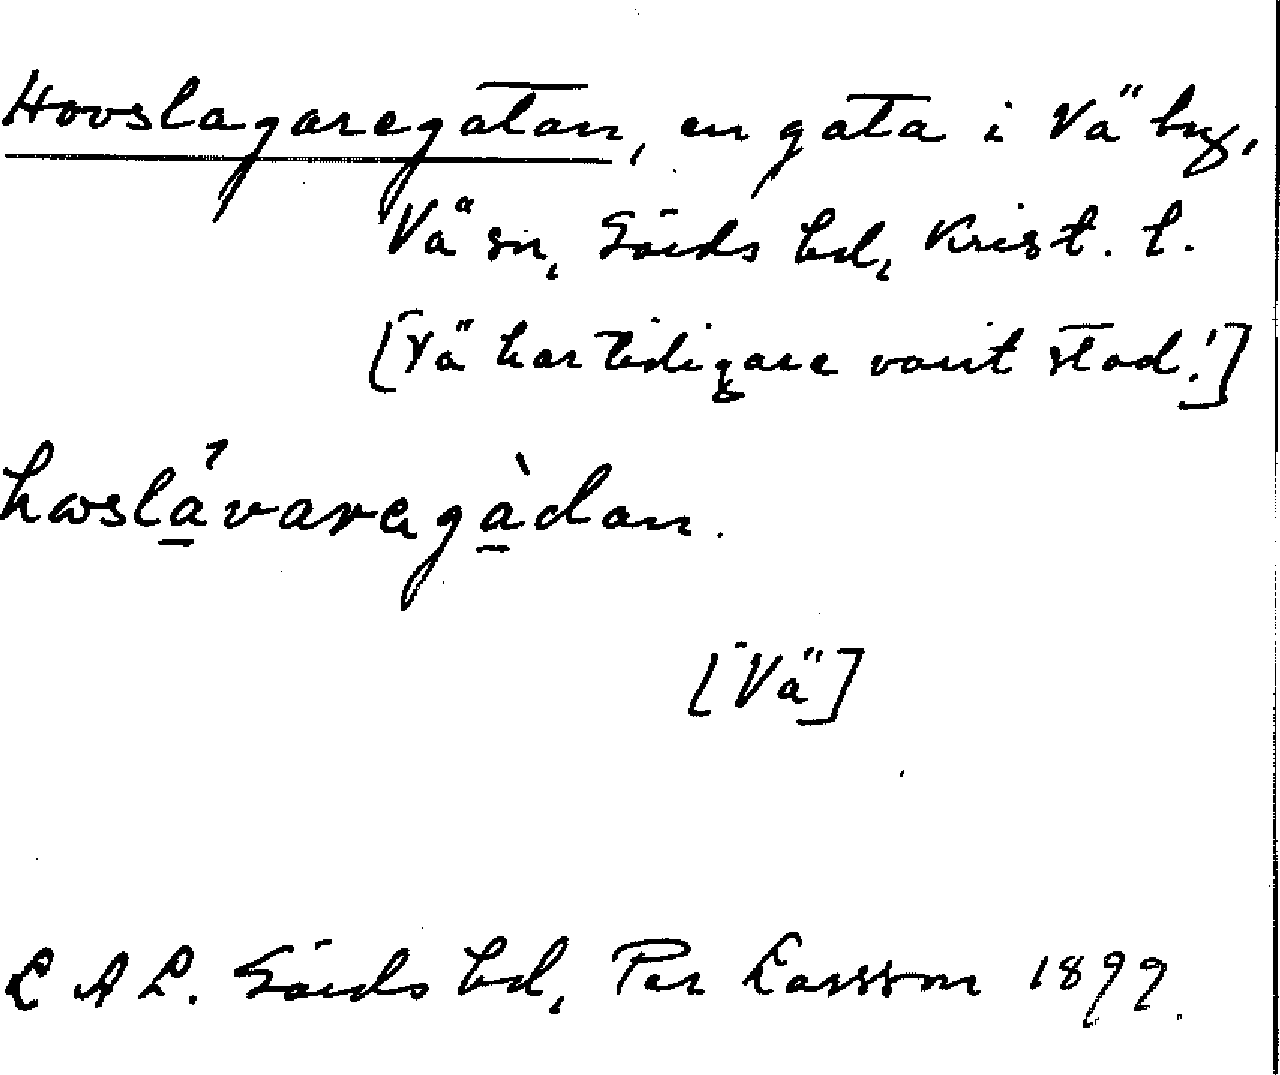 Hovslagaregatan, en gata i Vä by,
Vä sn, Gärds hd, Krist. l.
[Vä har tidigare varit stad!]
hɷslávaregàdan.
[Vä]
L A L. Gärds hd, Per Larsson 1899.